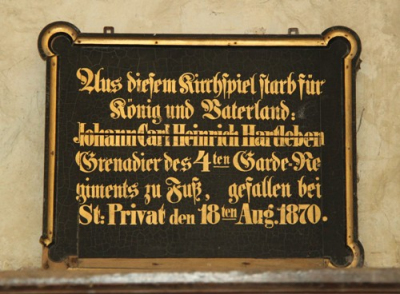 Aus diesem Kirchspiel starb für
König und Vaterland:
Johann Carl Heinrich Hartleben
Grenadier des 4ten Garde-Re-
giments zu Fuß, gefallen bei
St. Privat den 18ten Aug. 1870.